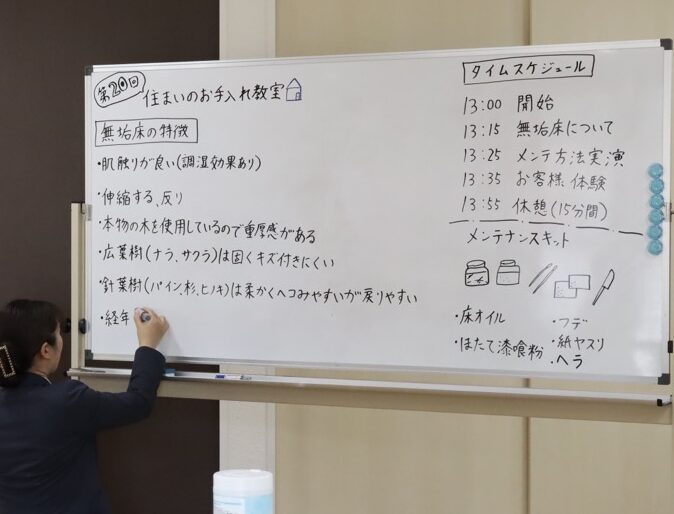 第20回 住まいのお手入れ教室
無垢床の特徴
・肌触りが良い(調湿効果あり)
・伸縮する、反り
・本物の木を使用しているので重厚感がある
・広葉樹(ナラ、サクラ)は固くキズ付きにくい
・針葉樹(パイン、杉、ヒノキ)は柔かくヘコみやすいが戻りやすい
・経年
タイムスケジュール
13:00 開始
13:15 無垢床について
13:25 メンテ方法実演
13:35 お客様体験
13:55 休憩(15分間)
メンテナンスキット
・床オイル
・ほたて漆喰粉
・フデ
・紙ヤスリ
・ヘラ